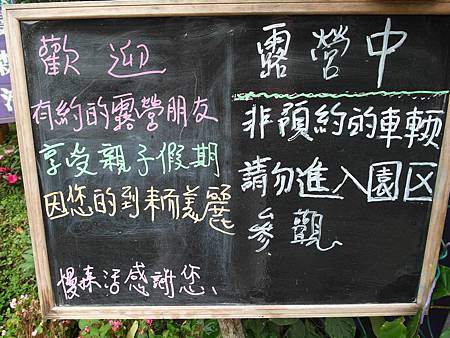 歡迎
有約的露營朋友
享受親子假期
因您的到來而美麗
慢森活感謝您、
露營中
非預約的車輛
請勿進入園区
參觀、